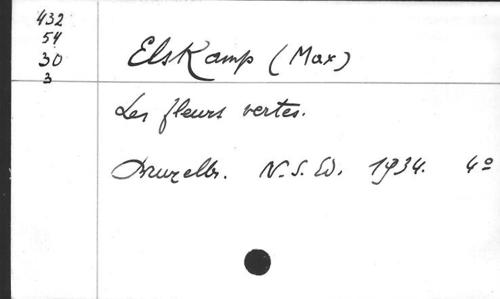 432
54
30
3
Elskamp (Max)
Les fleurs vertes.
Bruxelles. N.S.Ed. 1934. 4º